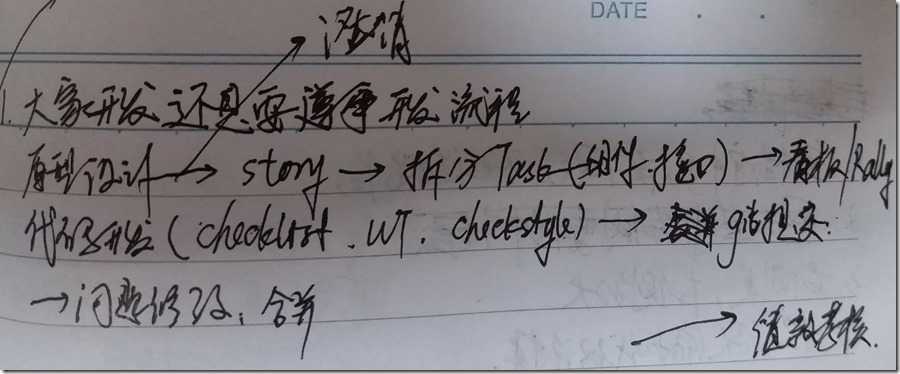 DATE . .
澄清
1. 大家开发还是要遵守开发流程
原型设计 → story → 拆分Task(组件.接口) → 看板/Rally
代码开发 (checklist . UT . checkstyle) → git提交.
→ 问题修改、合并
→ 绩效考核.